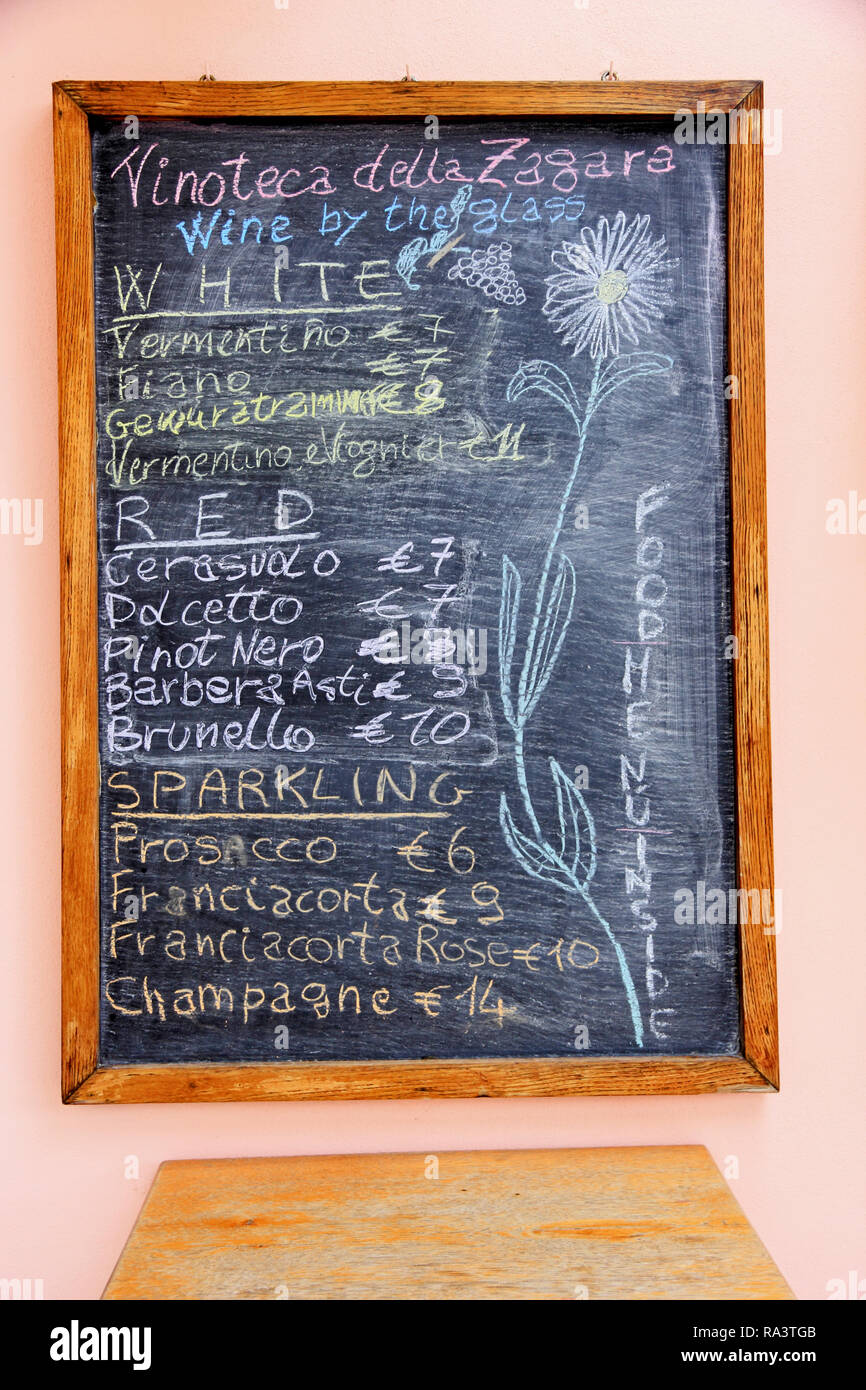 Vinoteca della Zagara
Wine by the glass
WHITE
Vermentiño € 7
Fiano € 7
Gewüratraminer € 8
Vermentino e Viognier € 11
RED
Cerasuolo € 7
Dolcetto € 7
Pinot Nero €
Barbera Asti € 9
Brunello € 10
SPARKLING
Prosacco € 6
Franciacorta € 9
Franciacorta Rose € 10
Champagne € 14
FOOD MENU INSIDE
alamy
Image ID: RA3TGB
www.alamy.com